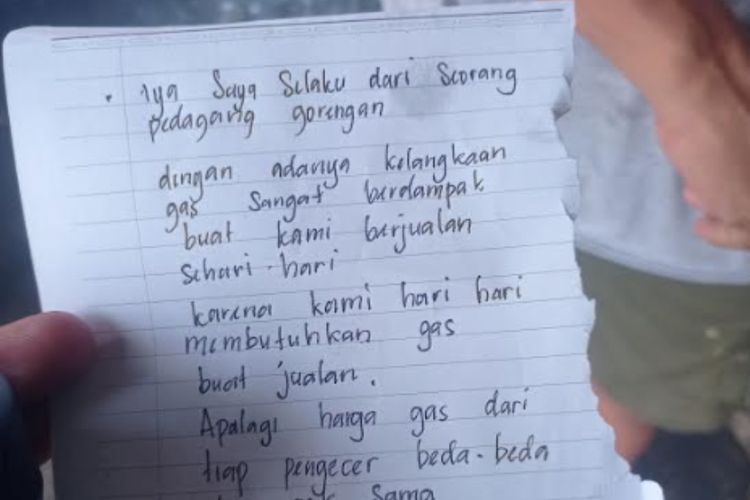 . Iya Saya Selaku dari Seorang
pedagang gorengan
dengan adanya kelangkaan
gas sangat berdampak
buat kami berjualan
sehari-hari
karena kami hari hari
membutuhkan gas
buat jualan.
Apalagi harga gas dari
tiap pengecer beda-beda
sama